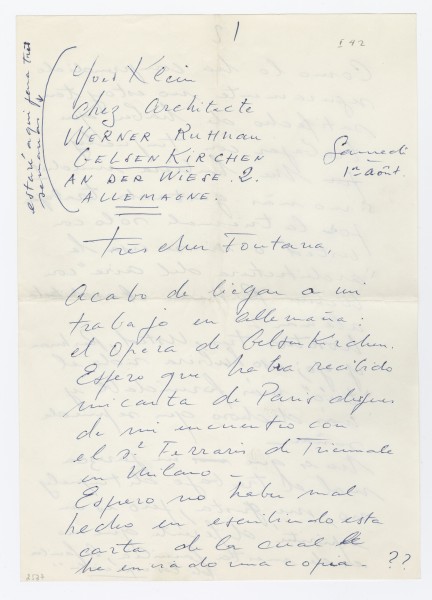 1
£ 92
estaré aqui para tres
semanas
Yves Klein
chez Architecte
WERNER RUHNAU
GELSENKIRCHEN
AN DER WIESE. 2.
ALLEMAGNE.
Samedi
1er août.
Très cher Fontana,
Acabo de llegar a mi
trabajo en allemaña:
el Opera de Gelsenkirchen.
Espero que habra recibido
mi carta de Paris
de mi encuentro con
el sr Ferraris di Triennale
en Milano –
Espero no haber mal
hecho en escribiendo esta
carta de la cual le
he enviado una copia. ??